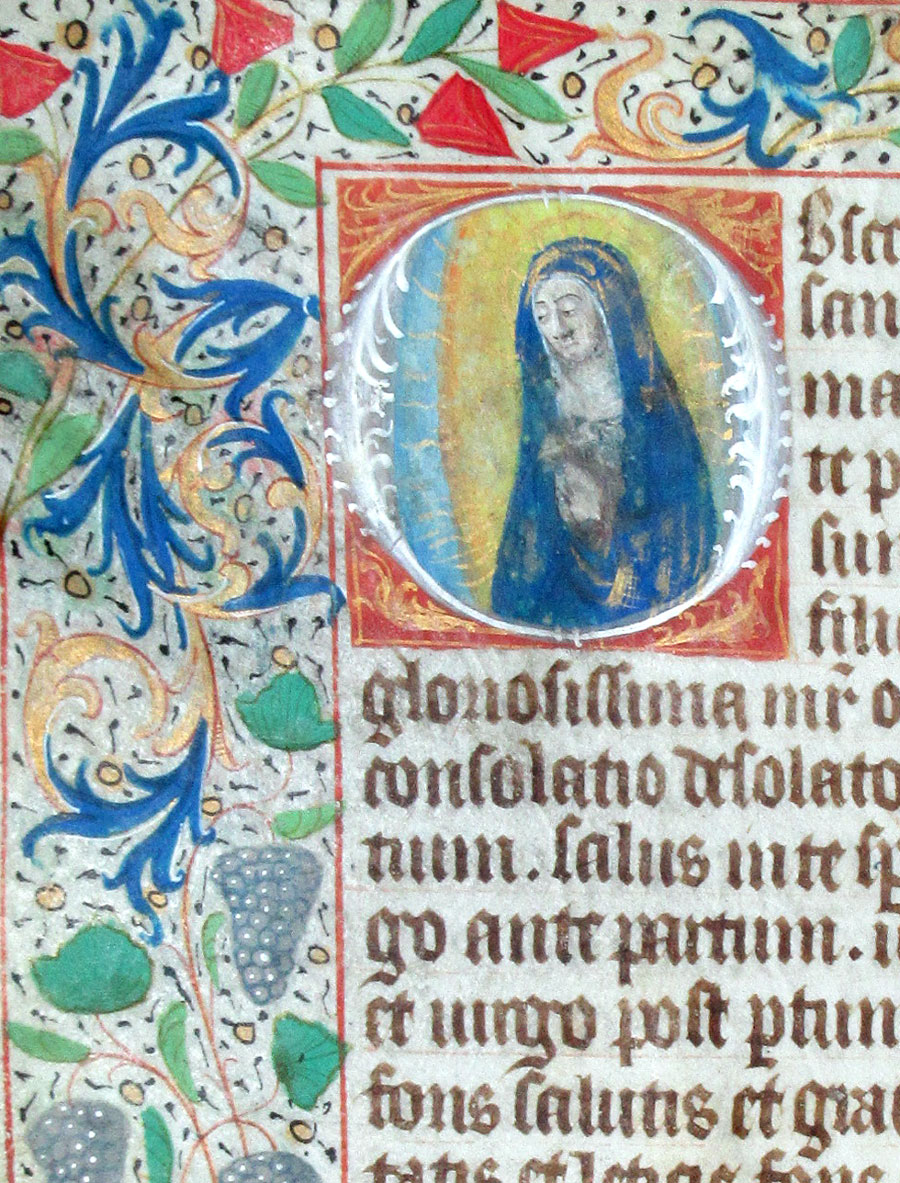 Obsec
san
ma
te p
sum
filia
gloriosissima mr̄ o
consolatio desolato
tium. salus in te sp
go ante partum. u
et uirgo post ptum
fons salutis et gra
tatis et leticie fons